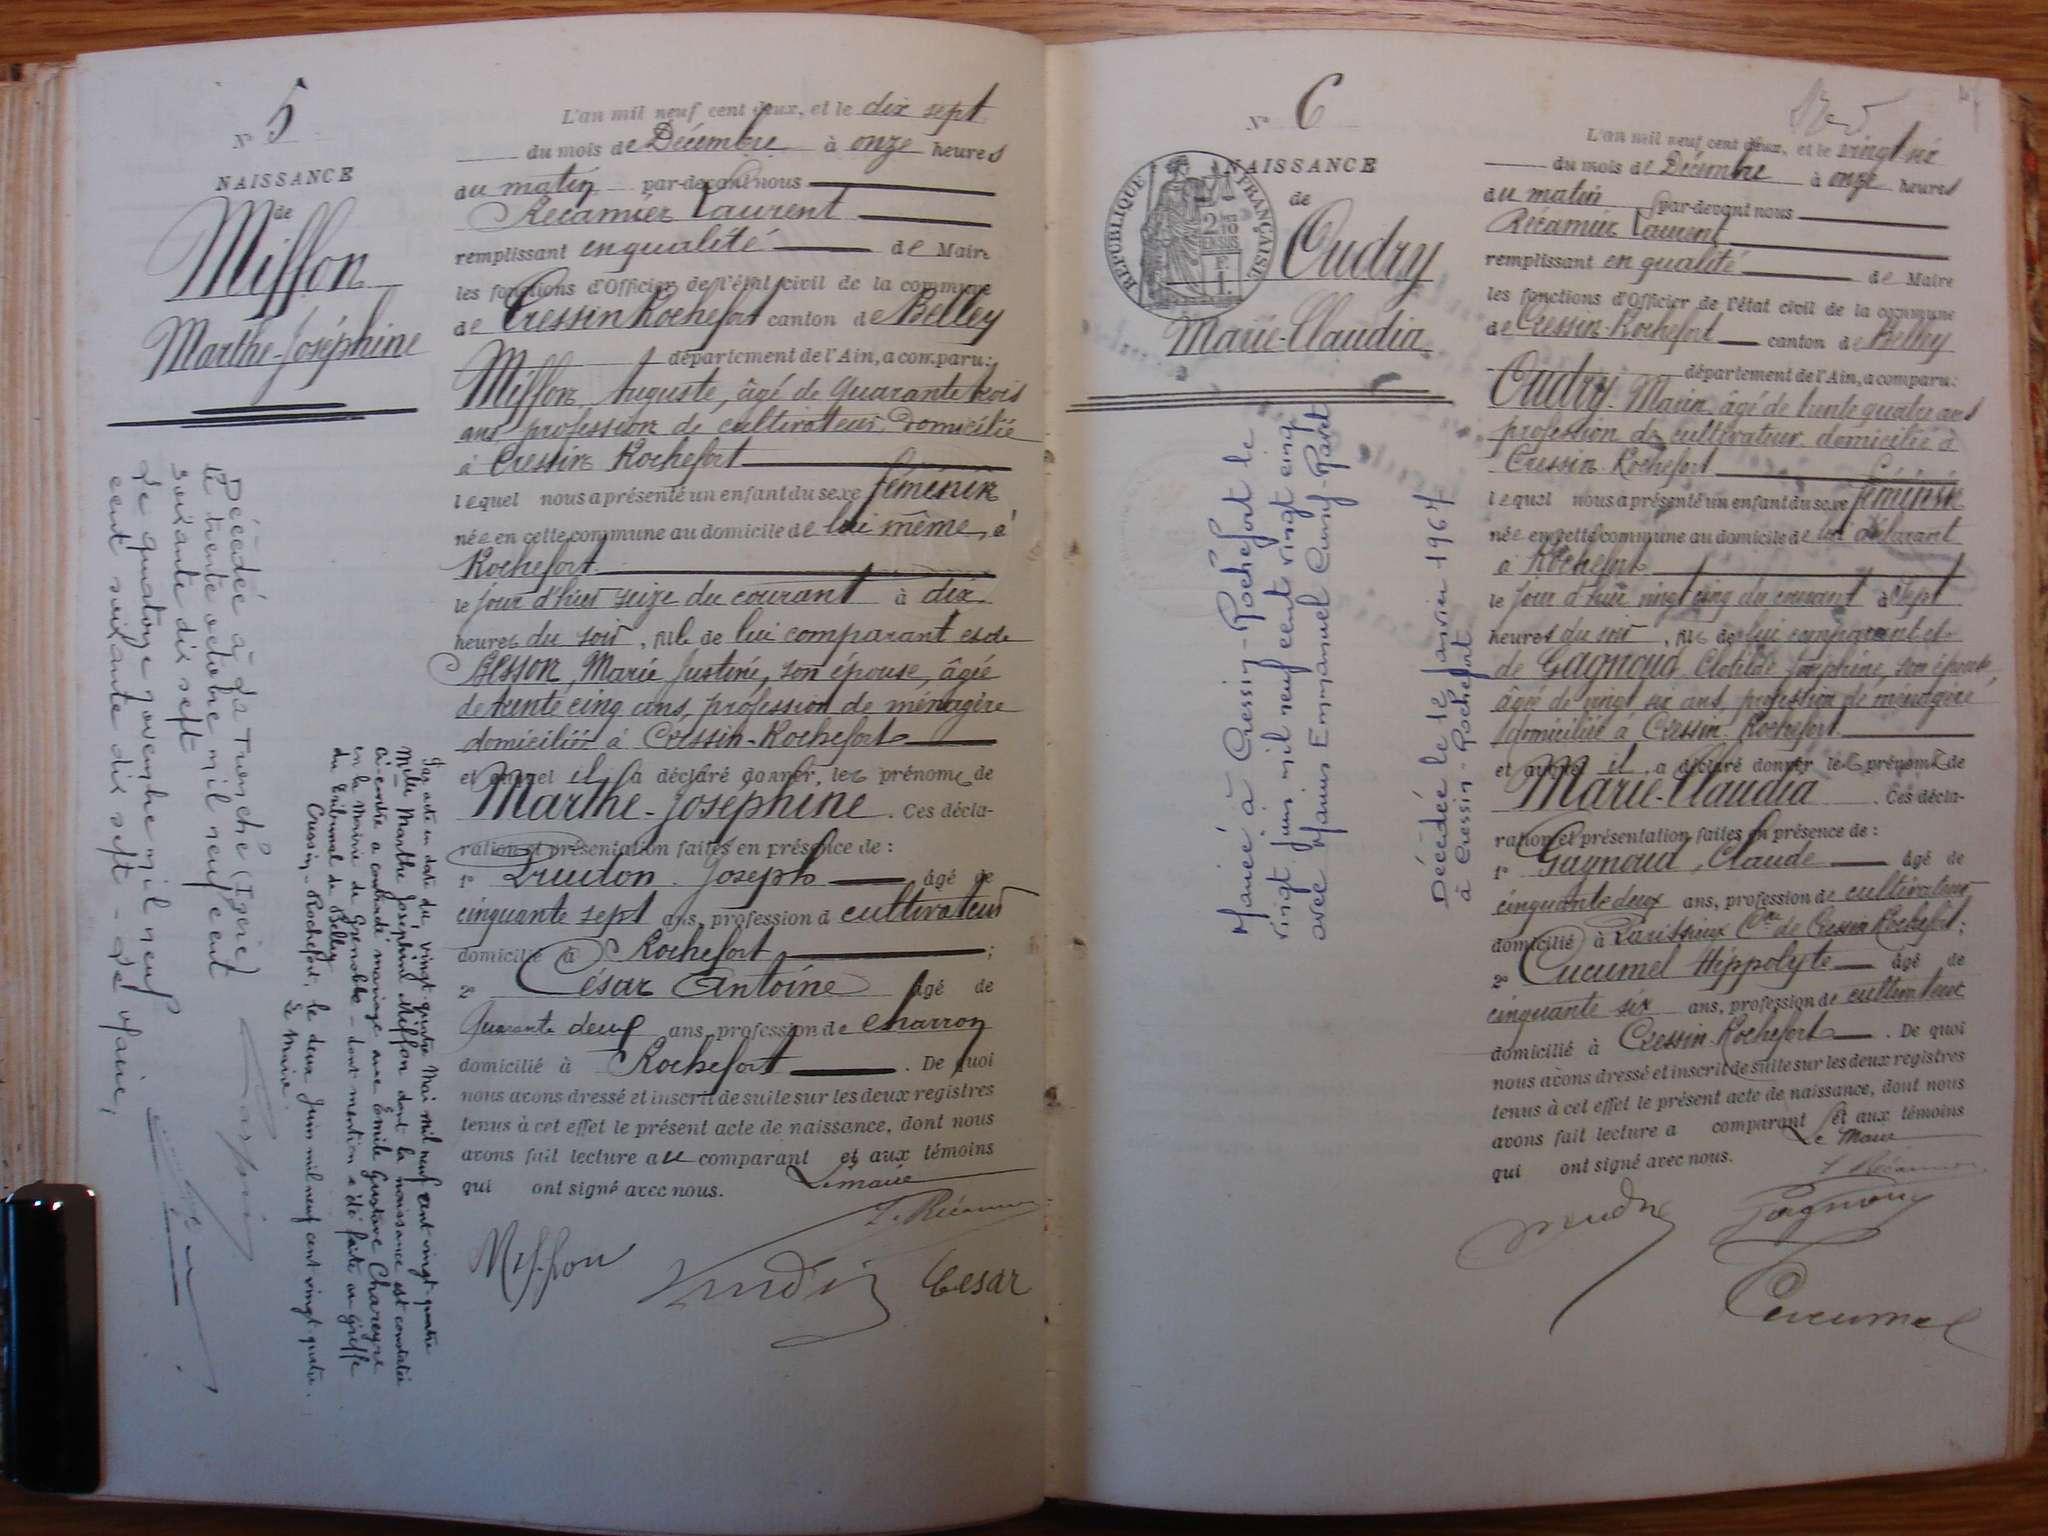 N° 5
NAISSANCE
de
Miffon
Marthe-Joséphine
L'an mil neuf cent deux, et le dix sept
du mois de Décembre à onze heures
du matin par-devant nous
Récamier Laurent
remplissant en qualité de Maire
les fonctions d'Officier de l'état civil de la commune
de Cressin Rochefort canton de Belley
département de l'Ain, a comparu:
Miffon Auguste, âgé de quarante trois
ans profession de cultivateur, domicilié
à Cressin Rochefort
lequel nous a présenté un enfant du sexe féminin
née en cette commune au domicile de lui même, à
Rochefort
le jour d'hier seize du courant à dix
heures du soir, fille de lui comparant et de
Besson, Marie Justine, son épouse, âgée
de trente cinq ans, profession de ménagère
domiciliée à Cressin-Rochefort
et auquel il a déclaré donner les prénoms de
Marthe-Joséphine. Ces décla-
ration et présentation faites en présence de :
1° Trudon Joseph âgé de
cinquante sept ans, profession d cultivateur
domicilié à Rochefort ;
2° César Antoine âgé de
Quarante deux ans, profession de charron
domicilié à Rochefort. De quoi
nous avons dressé et inscrit de suite sur les deux registres
tenus à cet effet le présent acte de naissance, dont nous
avons fait lecture au comparant et aux témoins
qui ont signé avec nous. Le maire
L. Récamier
Miffon César
Par acte en date du vingt quatre Mai mil neuf cent vingt-quatre
Mlle Marthe Joséphine Miffon dont la naissance est constatée
ci-contre a contracté mariage avec Emile Gustave Chareyre
en la Mairie de Grenoble - dont mention a été faite au greffe
du Tribunal de Belley
Cressin-Rochefort, le deux Juin mil neuf cent vingt quatre.
Le Maire.
Décédé à La Tronche (Isère)
le trente octobre mil neuf cent
soixante dix sept
Le quatorze novembre mil neuf
cent soixante dix sept - Le Maire,
N° 6
NAISSANCE
de
Oudry
Marie-Claudia
RÉPUBLIQUE FRANÇAISE
2/10 EN SUS
L'an mil neuf cent deux, et le vingt six
du mois de Décembre à onze heures
du matin par-devant nous
Récamier Laurent
remplissant en qualité de Maire
les fonctions d'Officier de l'état civil de la commune
de Cressin-Rochefort canton de Belley
département de l'Ain, a comparu:
Oudry Marin, âgé de trente quatre ans
profession de cultivateur domicilié à
Cressin-Rochefort
lequel nous a présenté un enfant du sexe féminin
née en cette commune au domicile de lui déclarant
à Rochefort
le jour d'hier vingt cinq du courant à sept
heures du soir, fille de lui comparant et
de Gagnoud Clotilde Joséphine, son épouse,
âgée de vingt six ans, profession de ménagère
domiciliée à Cressin-Rochefort.
et auquel il a déclaré donner les prénoms de
Marie-Claudia. Ces décla-
ration et présentation faites en présence de :
1° Gagnoud, Claude âgé de
cinquante deux ans, profession de cultivateur
domicilié à Parissieux Cne de Cressin Rochefort;
2° Cucumel Hippolyte âgé de
cinquante six ans, profession de cultivateur
domicilié à Cressin-Rochefort. De quoi
nous avons dressé et inscrit de suite sur les deux registres
tenus à cet effet le présent acte de naissance, dont nous
avons fait lecture a comparant et aux témoins
qui ont signé avec nous. Le Maire
L. Récamier
Oudry Gagnoud
Cucumel
Mariée à Cressin-Rochefort le
vingt juin mil neuf cent vingt cinq
avec Marius Emmanuel Cuny-Ravet
Décédée le janvier 1967
à Cressin-Rochefort